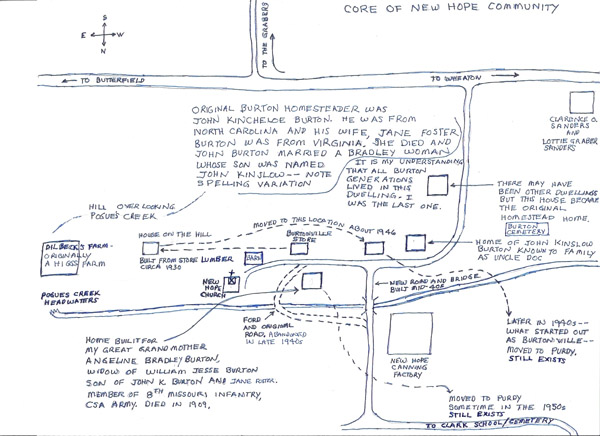 CORE OF NEW HOPE COMMUNITY
S
E W
N
TO THE GRABERS
TO BUTTERFIELD
TO WHEATON
ORIGINAL BURTON HOMESTEADER WAS
JOHN KINCHELOE BURTON. HE WAS FROM
NORTH CAROLINA AND HIS WIFE, JANE FOSTER
BURTON WAS FROM VIRGINIA. SHE DIED AND
JOHN BURTON MARRIED A BRADLEY WOMAN
WHOSE SON WAS NAMED
JOHN KINSLOW -- NOTE
SPELLING VARIATION
IT IS MY UNDERSTANDING
THAT ALL BURTON
GENERATIONS
LIVED IN THIS
DWELLING. I
WAS THE LAST ONE.
CLARENCE O.
SANDERS
AND
LOTTIE GRABER
SANDERS
THERE MAY HAVE
BEEN OTHER DWELLINGS
BUT THIS HOUSE BECAME
THE ORIGINAL
HOMESTEAD HOME.
BURTON
CEMETERY
HOME OF JOHN KINSLOW
BURTON KNOWN TO FAMILY
AS UNCLE DOC
HILL OVERLOOKING
POGUES CREEK
DILBECK'S FARM -
ORIGINALLY
A HIGGS FARM
HOUSE ON THE HILL
BUILT FROM STORE LUMBER
CIRCA 1930
MOVED TO THIS LOCATION ABOUT 1946
BURTONVILLE
STORE
BARN
NEW
HOPE
CHURCH
POGUES CREEK
HEADWATERS
NEW ROAD AND BRIDGE
BUILT MID-40s
FORD
AND ORIGINAL
ROAD. ABANDONED
IN LATE 1940s
HOME BUILT FOR
MY GREAT GRANDMOTHER
ANGELINE BRADLEY BURTON,
WIDOW OF WILLIAM JESSE BURTON
SON OF JOHN K. BURTON AND JANE
MEMBER OF 8TH MISSOURI INFANTRY,
CSA ARMY. DIED IN 1909.
NEW HOPE
CANNING
FACTORY
LATER IN 1940s --
WHAT STARTED OUT
AS BURTONVILLE --
MOVED TO PURDY.
STILL EXISTS
MOVED TO PURDY
SOMETIME IN THE 1950s
STILL EXISTS
TO CLARK SCHOOL/CEMETERY